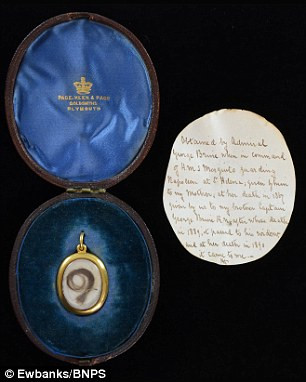 PAGE, KEEN & PAGE
GOLDSMITHS,
PLYMOUTH
Obtained by Admiral
George Brine when in command
of H.M.S Mosquito guarding
Napoleon at St Helena, given by him
to my Mother, at her death in
given by us to my brother Captain
George Brine whose death
in 1889, it passed to his widow
and at her death in
it came to me
© Ewbanks/BNPS